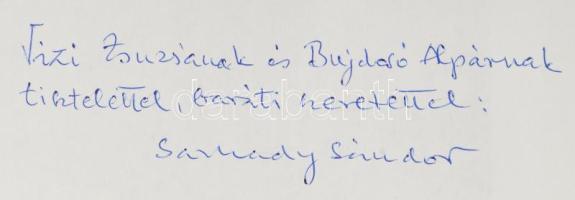 Vizi Zsuzsának és Bujdosó Alpárnak
tisztelettel, baráti szeretettel:
Sarkady Sándor
darabanth